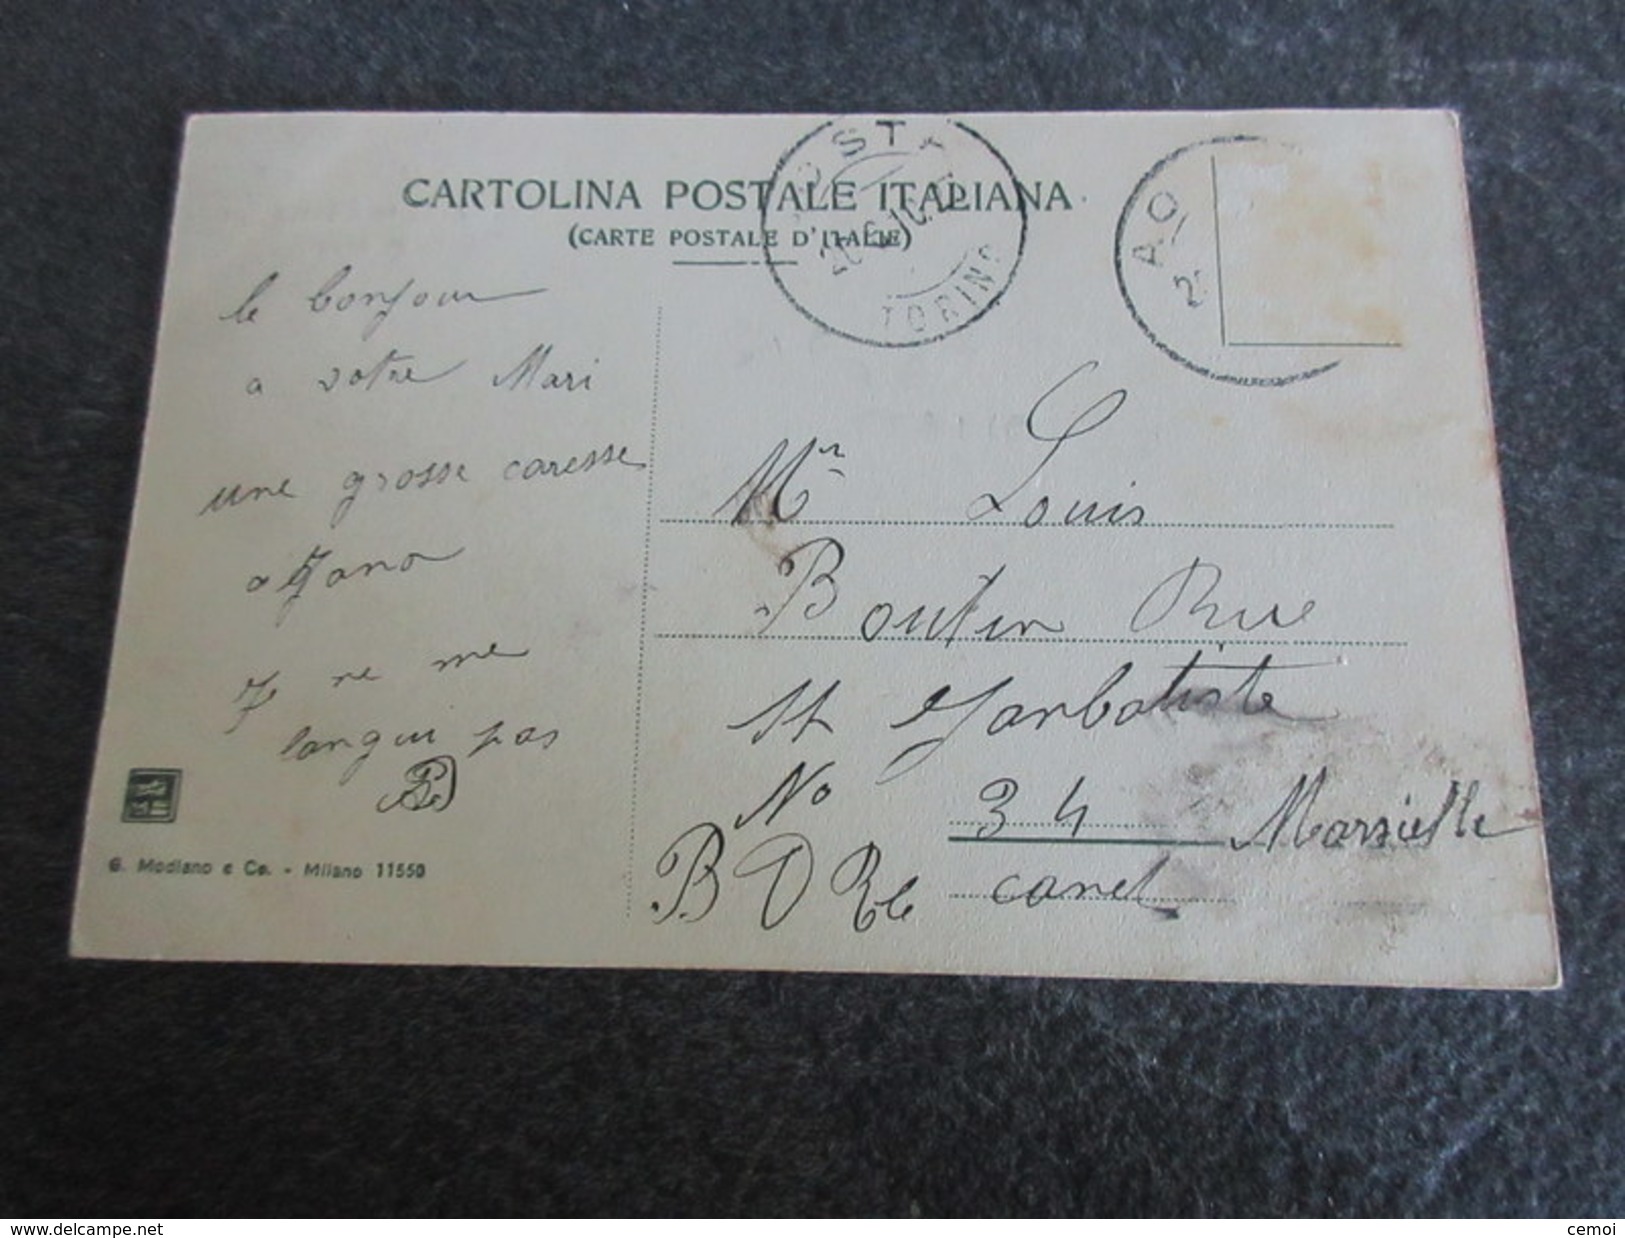 CARTOLINA POSTALE ITALIANA
(CARTE POSTALE D'ITALIE)
AOSTA
TORINO
AO
2
le bonjour
a votre Mari
une grosse caresse
a
ne me
langui pas
Mr Louis
Boutin Rue
St Janbatiste
No 34 Marseille
BDRh canet
G. Modiano e Co. - Milano 11550
www.delcampe.net
cemoi